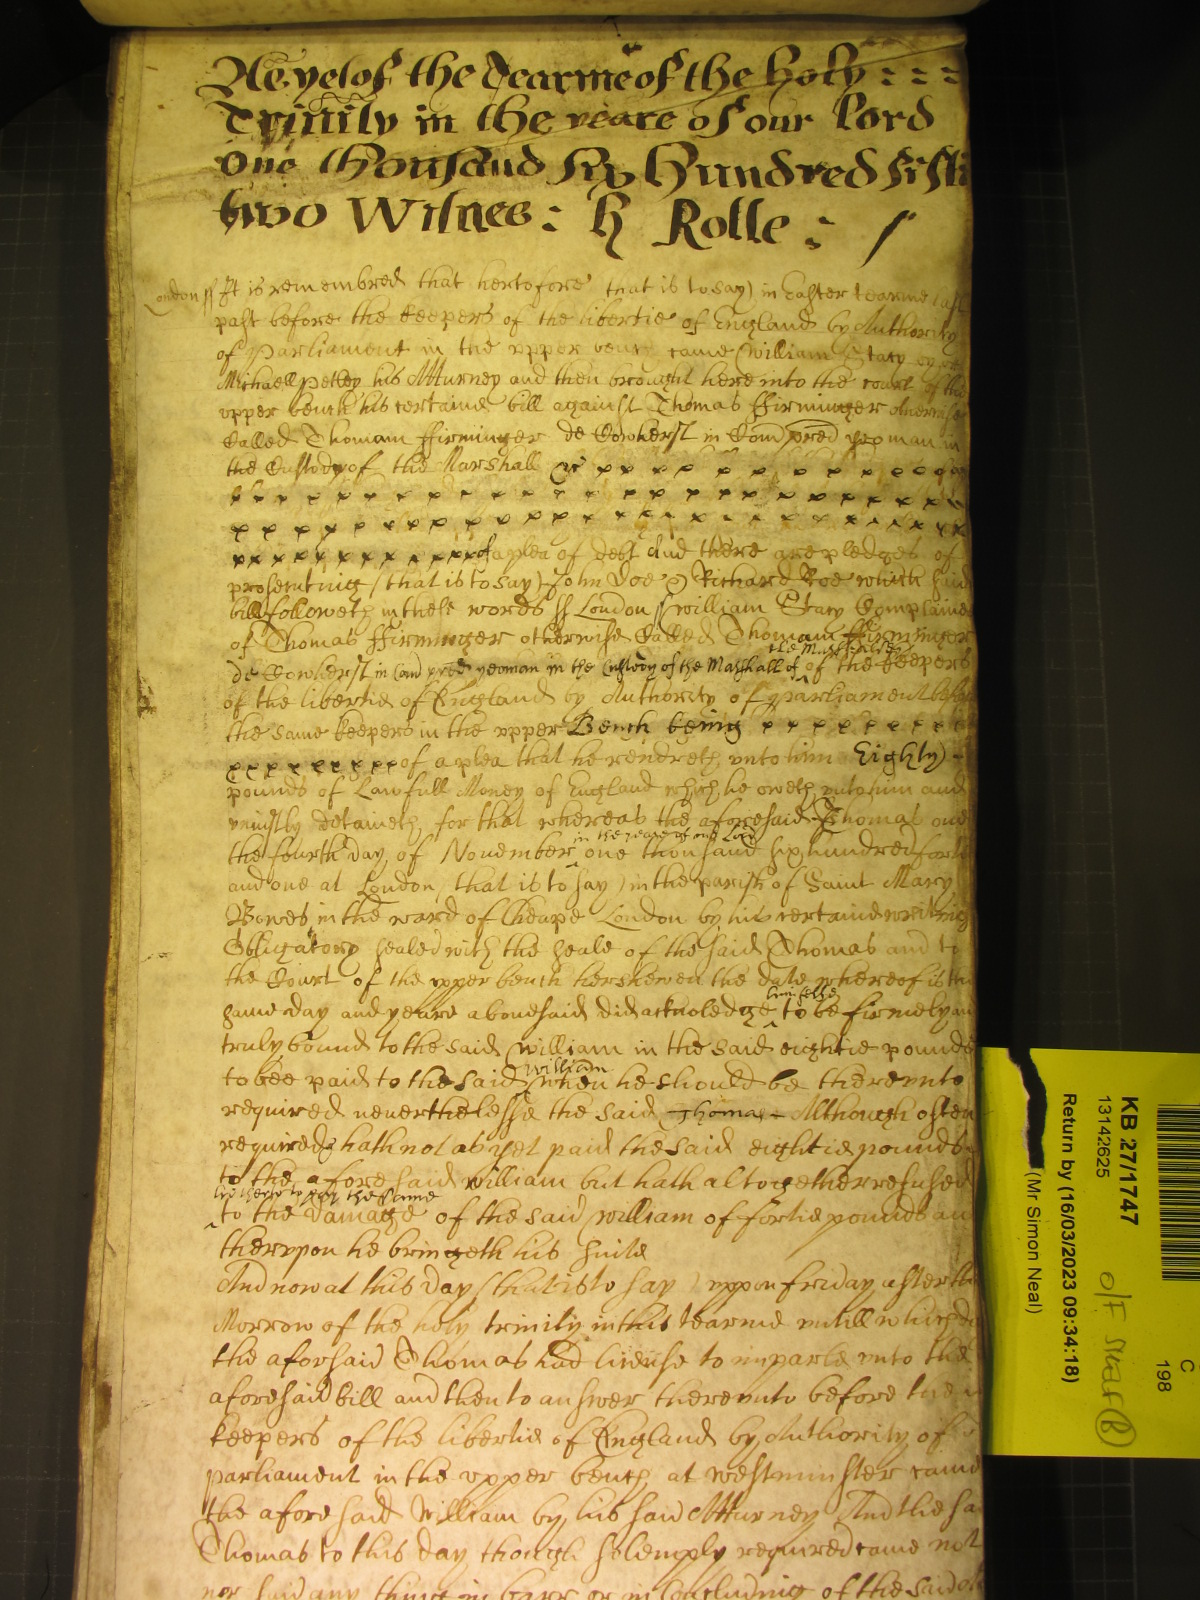 As yet of the Tearme of the holy : : :
Trinity in the yeare of our Lord
One thousand six hundred fifti
two Witnes : H Rolle : /
London ss It is remembred that hertofore that is to say) in Easter tearme last
past before the keepers of the libertie of England by Authority
of Parliament in the upper bench came William Stacy by
Michaell Pettey his Atturney and then brought here into the court of the
upper bench his certaine bill against Thomas ffirminger otherwise
Called Thomam ffirminger de Cowherst in Com pred yeoman in
the Custody of the Marshall &c x x x x x x x x x x x x
x x x x x x x x x x x x x x x x x x x x
x x x x x x x x x x x x x x x x x x x x
x x x x x x x x x x x x of a plea of debt And there are pledges of
prosecuting (that is to say) John Doe & Richard Roe which said
bill followeth in these words ss London ss William Stacy Complaines
of Thomas ffirminger otherwise Called Thomam ffirminger
the Marshalsey
de Cowherst in Com pred yeoman in the Custody of the Marshall of of the keepers
of the libertie of England by Authority of parliament before
the same keepers in the upper Bench being x x x x x x x x x
x x x x x x x x x x of a plea that he rendreth unto him Eighty) -
pounds of Lawfull Money of England which he oweth unto him and
uniustly detaineth, for that whereas the aforesaid Thomas one
in the yeare of our Lord
the fourth day of November one thousand six hundred fortie
and one at London, that is to say ) in the parish of Saint Mary
Bowes in the ward of Cheape London by his certaine writing
Obligatory sealed with the seale of the said Thomas and to
the Court of the upper bench her shewen the date whereof is the
himselfe
same day and yeare abovesaid did acknoledge to be firmely and
truly bound to the said William in the said eightie pounds
William
to bee paid to the said when he should be thereunto
required neverthelesse the said - Thomas - Although often
required hath not as yet paid the said eightie pounds
to the aforesaid William but hath altogether refused
hitherto to pay the same
to the damage of the said William of fortie pounds and
therupon he bringeth his suite
And now at this day (that is to say ) uppon friday after the
Morrow of the holy trinity in this tearme untill which day
the aforsaid Thomas had license to imparle unto the
aforesaid bill and then to answer thereunto before the
keepers of the libertie of England by Authority of
parliament in the upper bench at westminster came
the aforesaid William by his said Atturney And the said
Thomas to this day though solemply required came not
nor said any thing in barr or in Concluding of the said
KB 27/1747
13142625
Return by (16/03/2023 09:34:18)
(Mr Simon Neal)
C
198
O/F